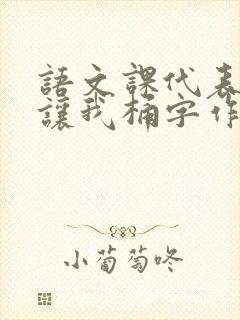 語文課代表
讓我桶字作
小葡萄咚